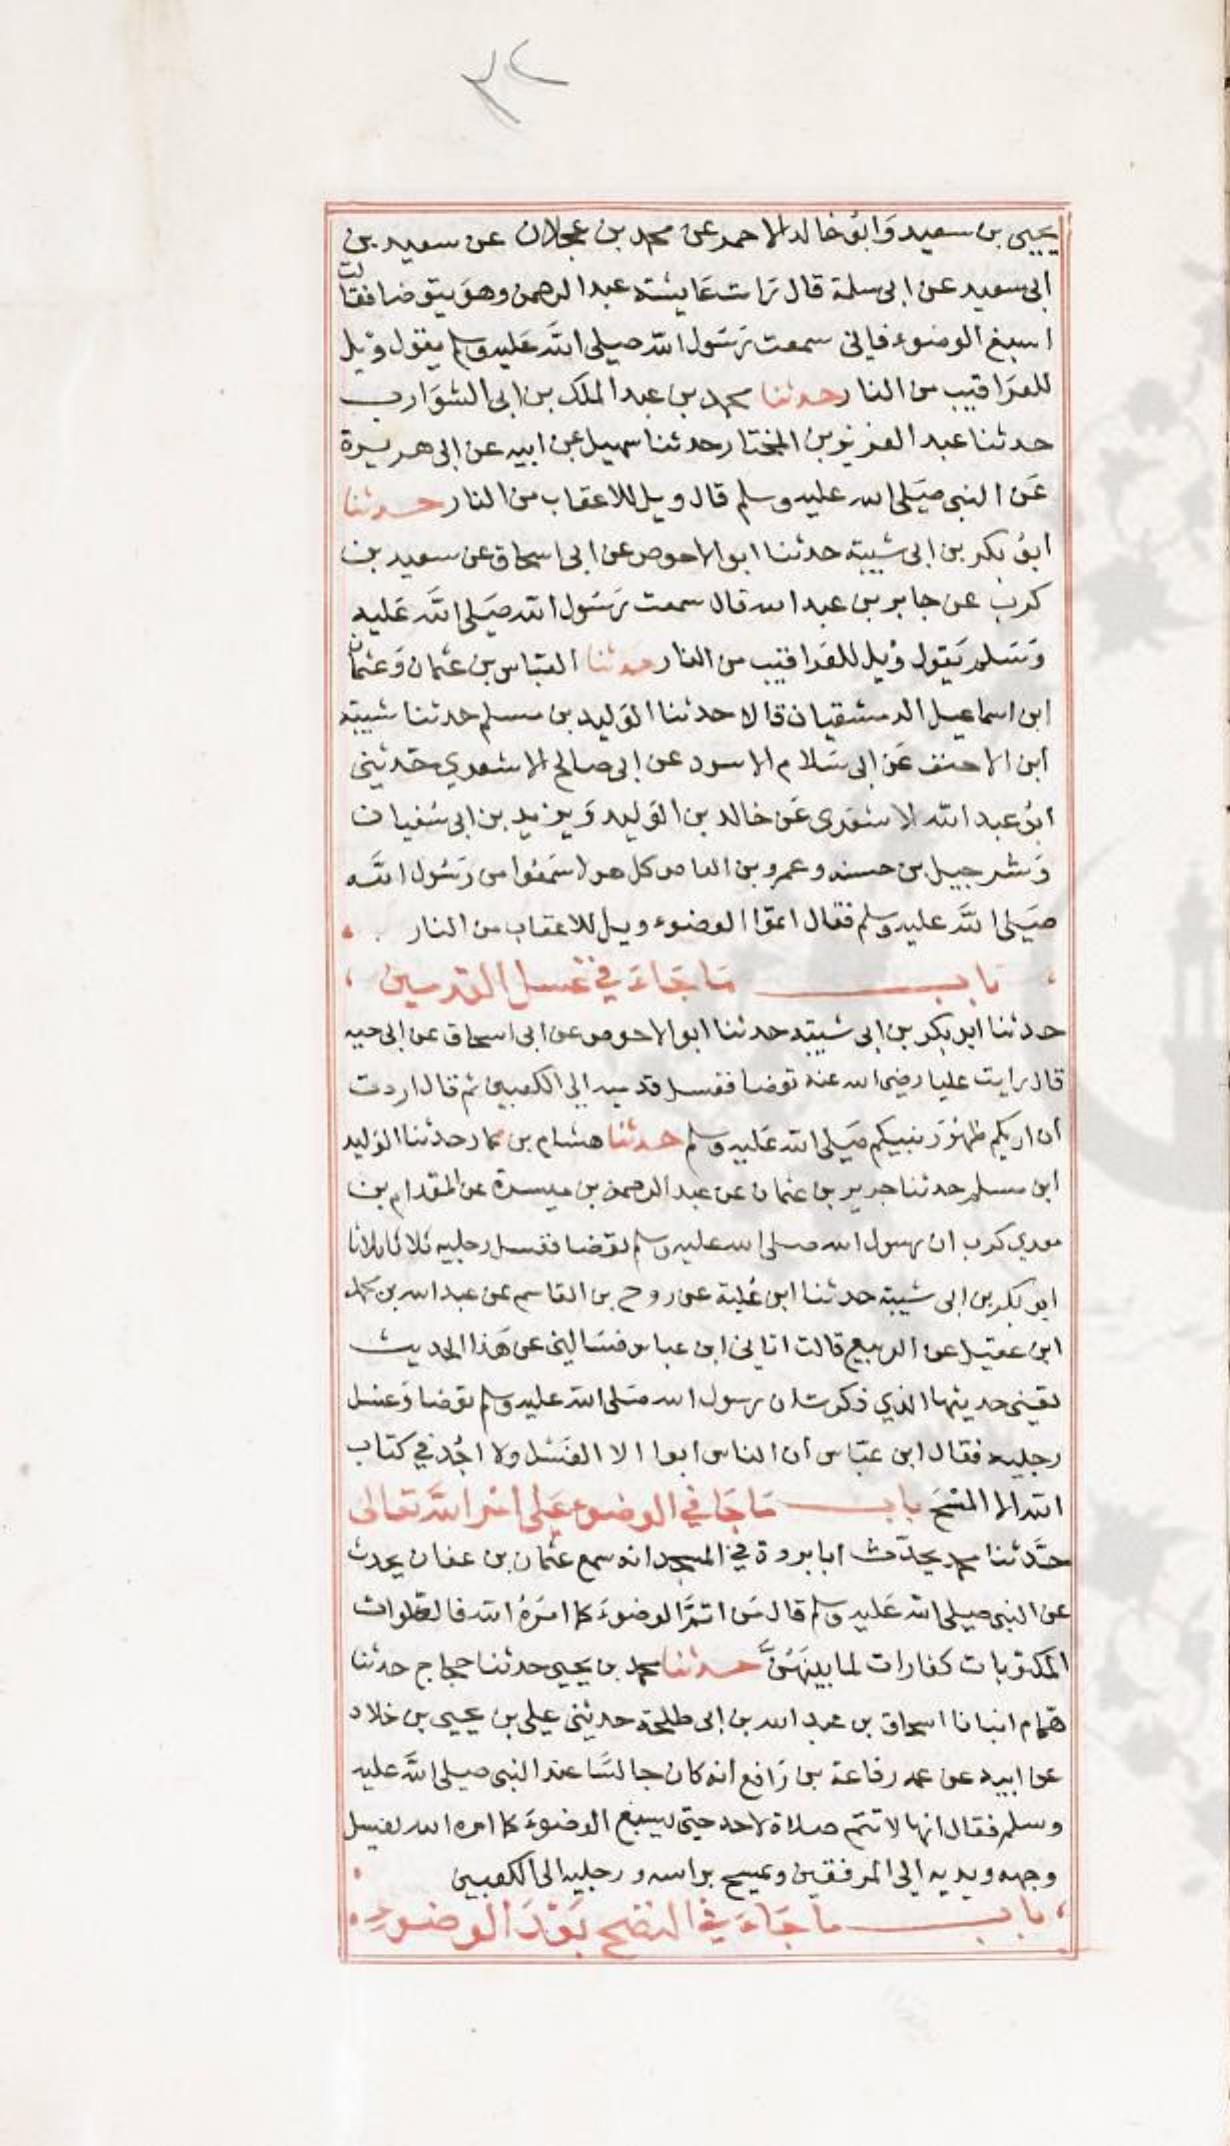 ٣٢
يحيى بن سعيد وَابُو خالد الاحمر عن محمد بن عجلان عن سعيد بن
ابى سعيد عن ابى سلمة قال رات عَايشة عبد الرحمن وهو يتوضا فقالت
اسبغ الوضوء فانى سمعت رَسُول الله صلى الله عَليه وسلم يقول وَيل
للعرَاقيب من النار حدثنا محمد بن عبد الملك بن ابى الشوَارب
حدثنا عبد العزيز بن المختار حدثنا سهيل عن ابيه عن ابى هريرة
عَن النبى صَلى الله عليه وسلم قال ويل للاعقاب من النار حدثنا
ابوُ بكر بن ابى شيبة حدثنا ابو الاحوص عن ابى اسحاق عن سعيد بن
كرب عن جابر بن عبد الله قال سمعت رَسُول الله صَلى الله عَليه
وَسَلم يَقول وَيل للعرَاقيب من النار حدثنا العبّاس بن عثمان وَعثمان
ابن اسماعيل الدمشقيان قالا حدثنا الوَليد بن مسلم حدثنا شيبة
ابن الاحنف عَن ابى سَلام الاسود عن ابى صالح الاشعري حَدثنى
ابوُ عبد الله الاشعَرى عَن خالد بن الوَليد وَيزيد بن ابى سُفيان
وَشرحبيل بن حسنه وعمرو بن العاص كل هولا سَمعُوا من رَسُول الله
صَلى الله عليه وسلم فقال اتموا الوضوء ويل للاعقاب من النار
باب مَا جَاءَ في غسل القدمين
حدثنا ابو بكر بن ابى شيبة حدثنا ابو الاحوص عن ابى اسحاق عن ابى حيه
قال رايت عليا رضى الله عنه توضا فغسل قدميه الى الكعبين ثم قال اردت
ان اريكم طهُوَر نبيكم صَلى الله عَليه وسلم حدثنا هشام بن عمار حدثنا الوَليد
ابن مسلم حدثنا جرير بن عثمان عن عبد الرحمن بن ميسرة عن المقدام بن
معدي كرب ان رسول الله صلى الله عليه وسلم توضا فغسل رجليه ثلاثا ثلاثا
ابو بكر بن ابى شيبة حدثنا ابن عُلية عن روح بن القاسم عن عبد الله بن محمد
ابن عقيل عن الربيع قالت اتانى ابن عباس فسَالنى عن هَذا الحديث
تعنى حديثها الذي ذكرت ان رسول الله صَلى الله عليه وسلم توضا وَغسل
رجليه فقال ابن عبّاس ان الناس ابوا الا الغَسْل ولا اجُد في كتاب
الله الا المسْحَ باب مَا جَا في الوضوء عَلى امر الله تعالى
حَدثنا محمد يحدّث ابا بردة في المسجد انه سمع عثمان بن عفان يحدث
عن النبى صلى الله عَليه وسلم قال مَن اتمَّ الوضوءَ كما امَرَهُ الله فالصَّلوات
المكتوبات كفارات لما بينَهُنَّ حدثنا محمد بن يحيى حدثنا حجاج حدثنا
همّام انبانا اسحاق بن عبد الله بن ابى طلحة حدثنى على بن يحيى بن خلاد
عن ابيه عن عمه رفاعة بن رَافع انه كان جالسًا عند النبى صلى الله عليه
وسلم فقال انها لا تتم صلاة لاحد حتى يسبغ الوضوءَ كما امره الله يغسل
وجهه ويديه الى المرفقين ويمسح براسه ورجليه الى الكعبين
باب ما جَاءَ في النضح بَعْدَ الوضوءِ